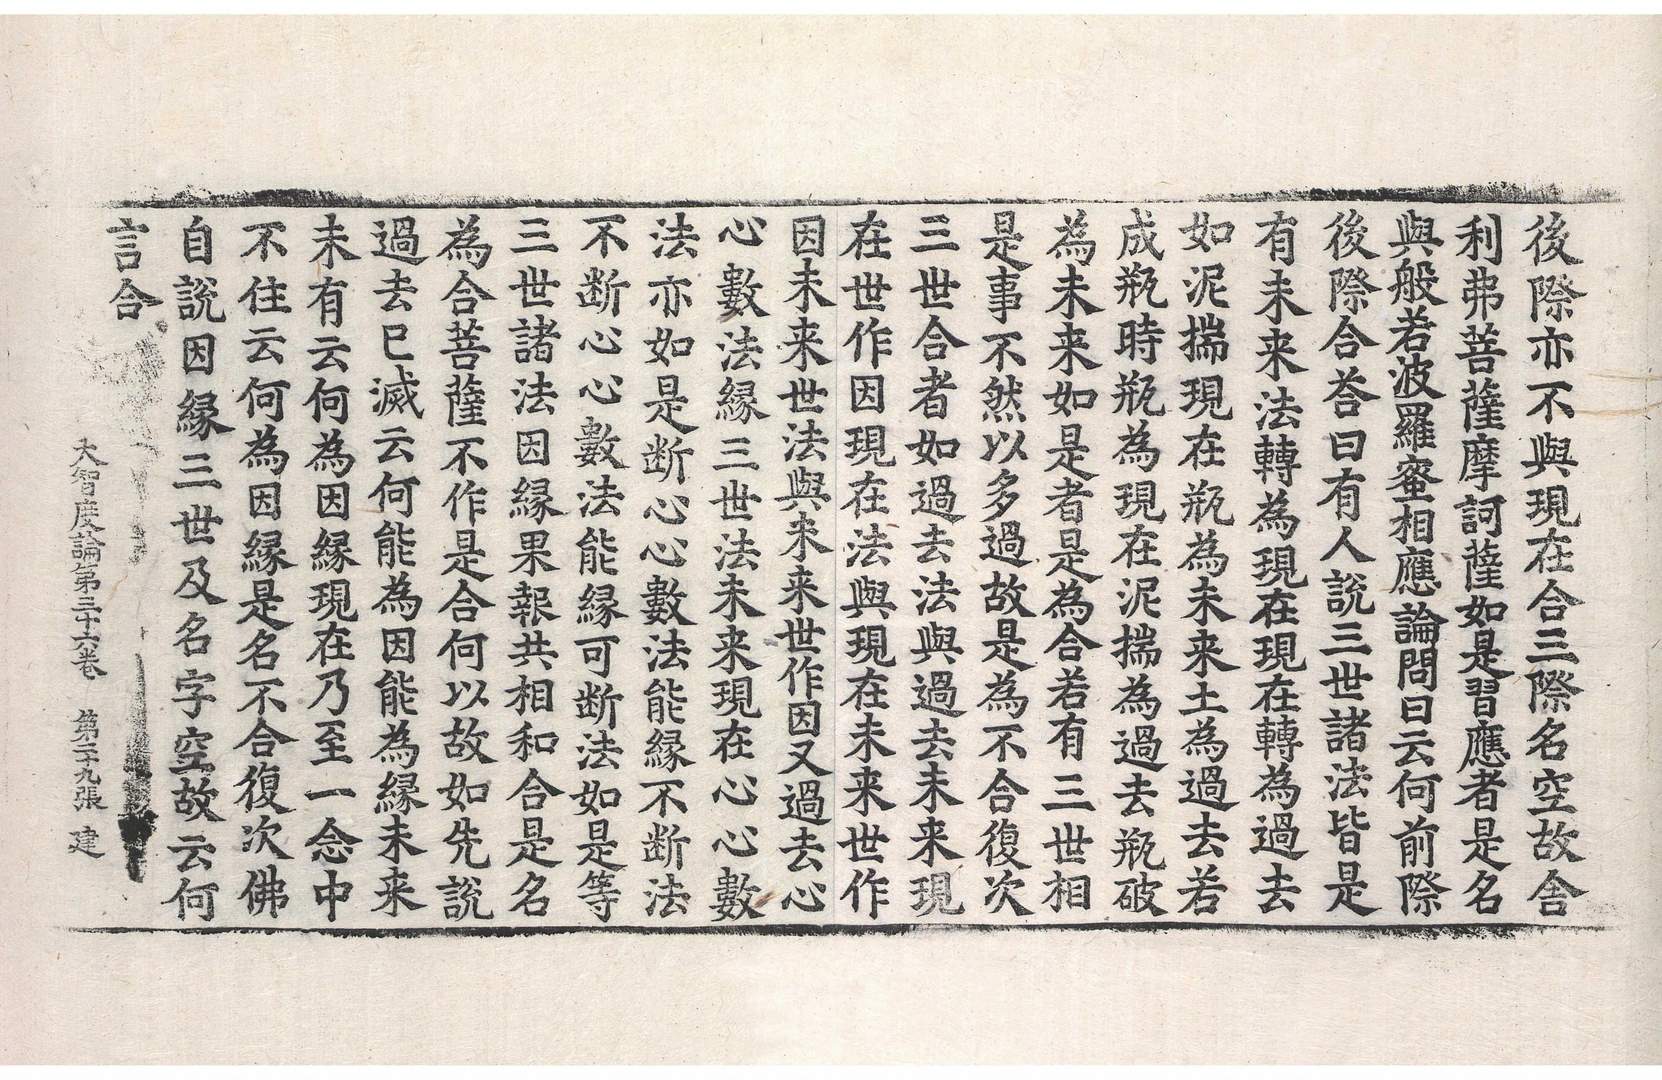 後際亦不與現在合三際名空故舍
利弗菩薩摩訶薩如是習應者是名
與般若波羅蜜相應論問曰云何前際
後際合荅曰有人說三世諸法皆是
有未来法轉為現在現在轉為過去
如泥揣現在瓶為未来土為過去若
成瓶時瓶為現在泥揣為過去瓶破
為未来如是者是為合若有三世相
是事不然以多過故是為不合復次
三世合者如過去法與過去未来現
在世作因現在法與現在未来世作
因未来世法與未来世作因又過去心
心數法縁三世法未来現在心心數
法亦如是断心心數法能縁不断法
不断心心數法能縁可断法如是等
三世諸法因縁果報共相和合是名
為合菩薩不作是合何以故如先說
過去已滅云何能為因能為縁未来
未有云何為因縁現在乃至一念中
不住云何為因縁是名不合復次佛
自說因縁三世及名字空故云何
言合
大智度論第三十六卷 第二十九張 建